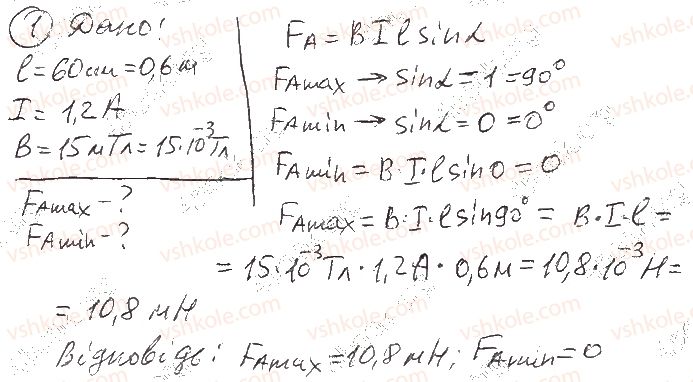 1 Дано!
l = 60 см = 0,6 м
I = 1,2 А
B = 15 мТл = 15·10⁻³ Тл
F_Amax - ?
F_Amin - ?
F_A = B I l sinα
F_Amax → sinα = 1 = 90°
F_Amin → sinα = 0 = 0°
F_Amin = B·I·l sin0 = 0
F_Amax = B·I·l sin90° = B·I·l =
= 15·10⁻³ Тл · 1,2 А · 0,6 м = 10,8·10⁻³ Н =
= 10,8 мН
Відповідь: F_Amax = 10,8 мН; F_Amin = 0
vshkole.com